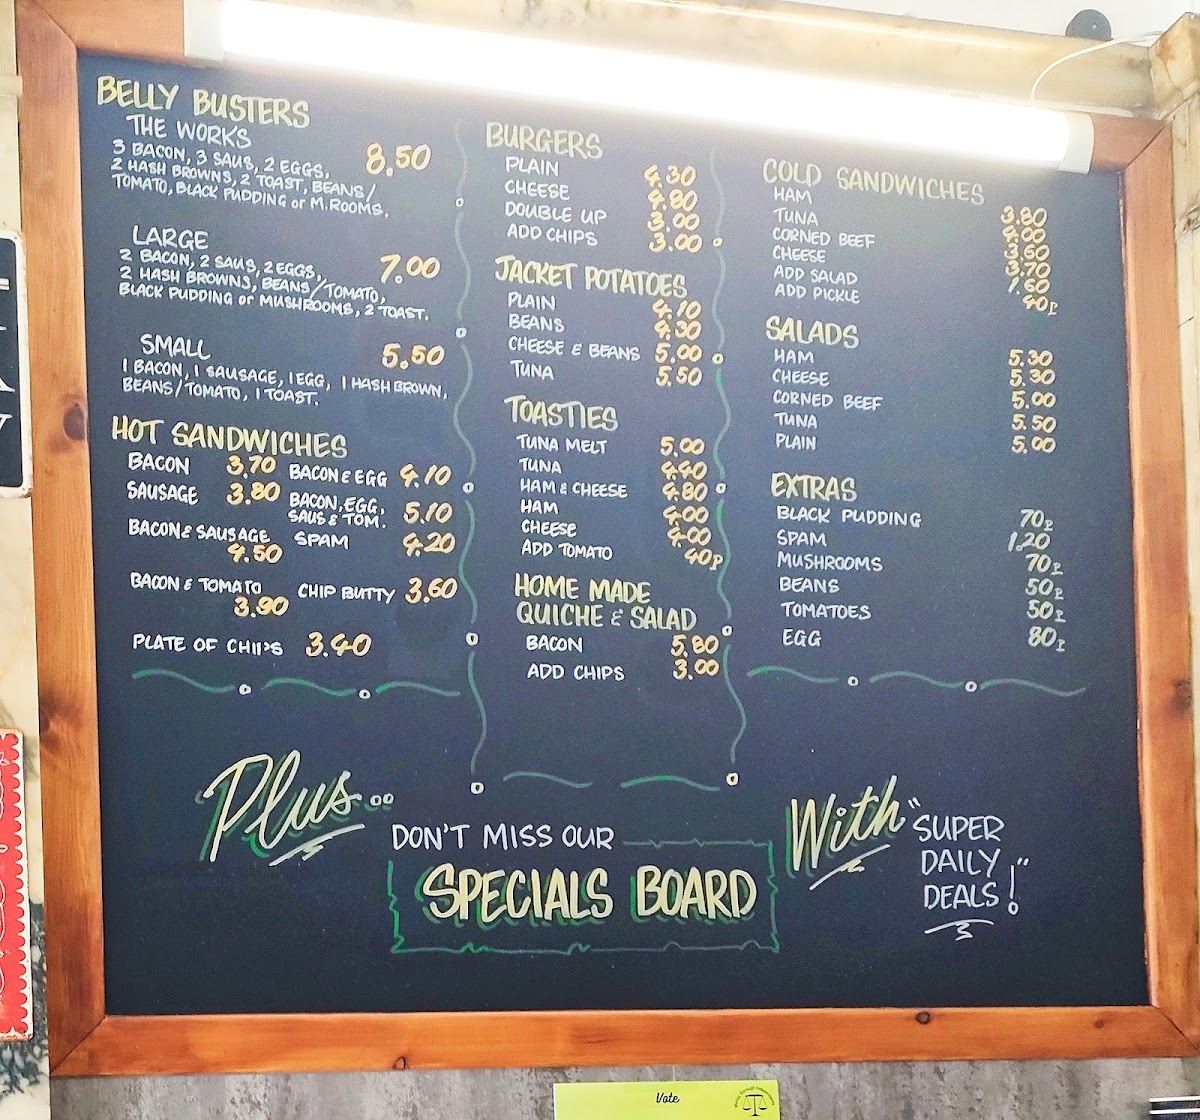 BELLY BUSTERS
THE WORKS
3 BACON, 3 SAUS, 2 EGGS, 8.50
2 HASH BROWNS, 2 TOAST, BEANS/
TOMATO, BLACK PUDDING or M.ROOMS.
LARGE
2 BACON, 2 SAUS, 2 EGGS, 7.00
2 HASH BROWNS, BEANS/TOMATO,
BLACK PUDDING or MUSHROOMS, 2 TOAST.
SMALL 5.50
1 BACON, 1 SAUSAGE, 1 EGG, 1 HASH BROWN,
BEANS/TOMATO, 1 TOAST.
HOT SANDWICHES
BACON 3.70 BACON & EGG 4.10
SAUSAGE 3.80 BACON, EGG,
SAUS & TOM. 5.10
BACON & SAUSAGE SPAM 4.20
4.50
BACON & TOMATO CHIP BUTTY 3.60
3.90
PLATE OF CHIPS 3.40
BURGERS
PLAIN 4.30
CHEESE 4.80
DOUBLE UP 3.00
ADD CHIPS 3.00
JACKET POTATOES
PLAIN 4.10
BEANS 4.30
CHEESE & BEANS 5.00
TUNA 5.50
TOASTIES
TUNA MELT 5.00
TUNA 4.40
HAM & CHEESE 4.80
HAM 4.00
CHEESE 4.00
ADD TOMATO 40P
HOME MADE
QUICHE & SALAD
BACON 5.80
ADD CHIPS 3.00
COLD SANDWICHES
HAM 3.80
TUNA 4.00
CORNED BEEF 3.60
CHEESE 3.70
ADD SALAD 1.60
ADD PICKLE 40P
SALADS
HAM 5.30
CHEESE 5.30
CORNED BEEF 5.00
TUNA 5.50
PLAIN 5.00
EXTRAS
BLACK PUDDING 70P
SPAM 1.20
MUSHROOMS 70P
BEANS 50P
TOMATOES 50P
EGG 80P
Plus..
DON'T MISS OUR
SPECIALS BOARD
With
"SUPER
DAILY
DEALS!"
Vote